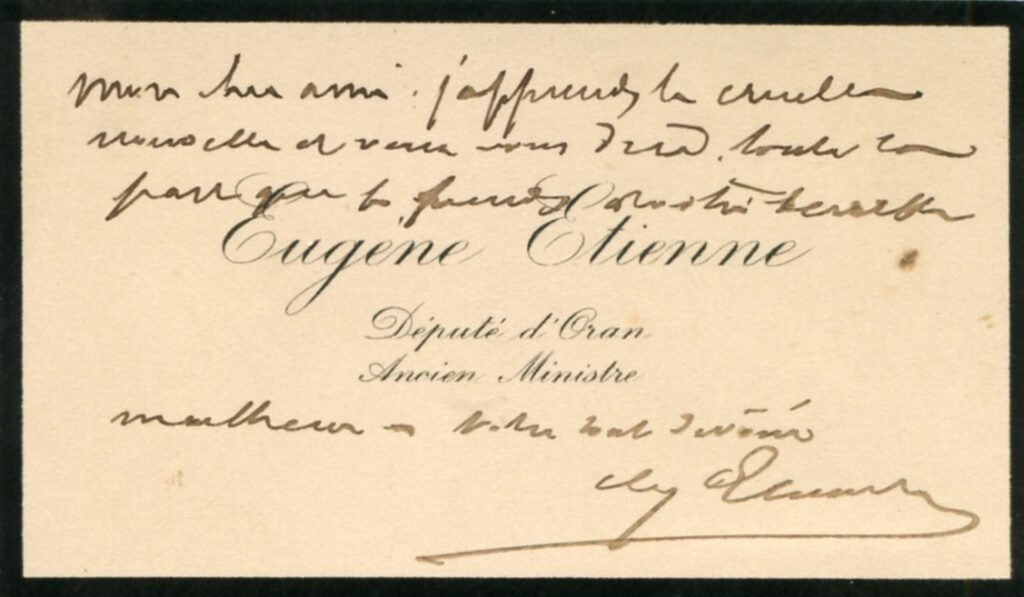 mon cher ami. j'apprends la cruelle
nouvelle et veux vous dire toute la
part que je prends à votre terrible
Eugène Etienne
Député d'Oran
Ancien Ministre
malheur – votre tout dévoué
Eug Etienne